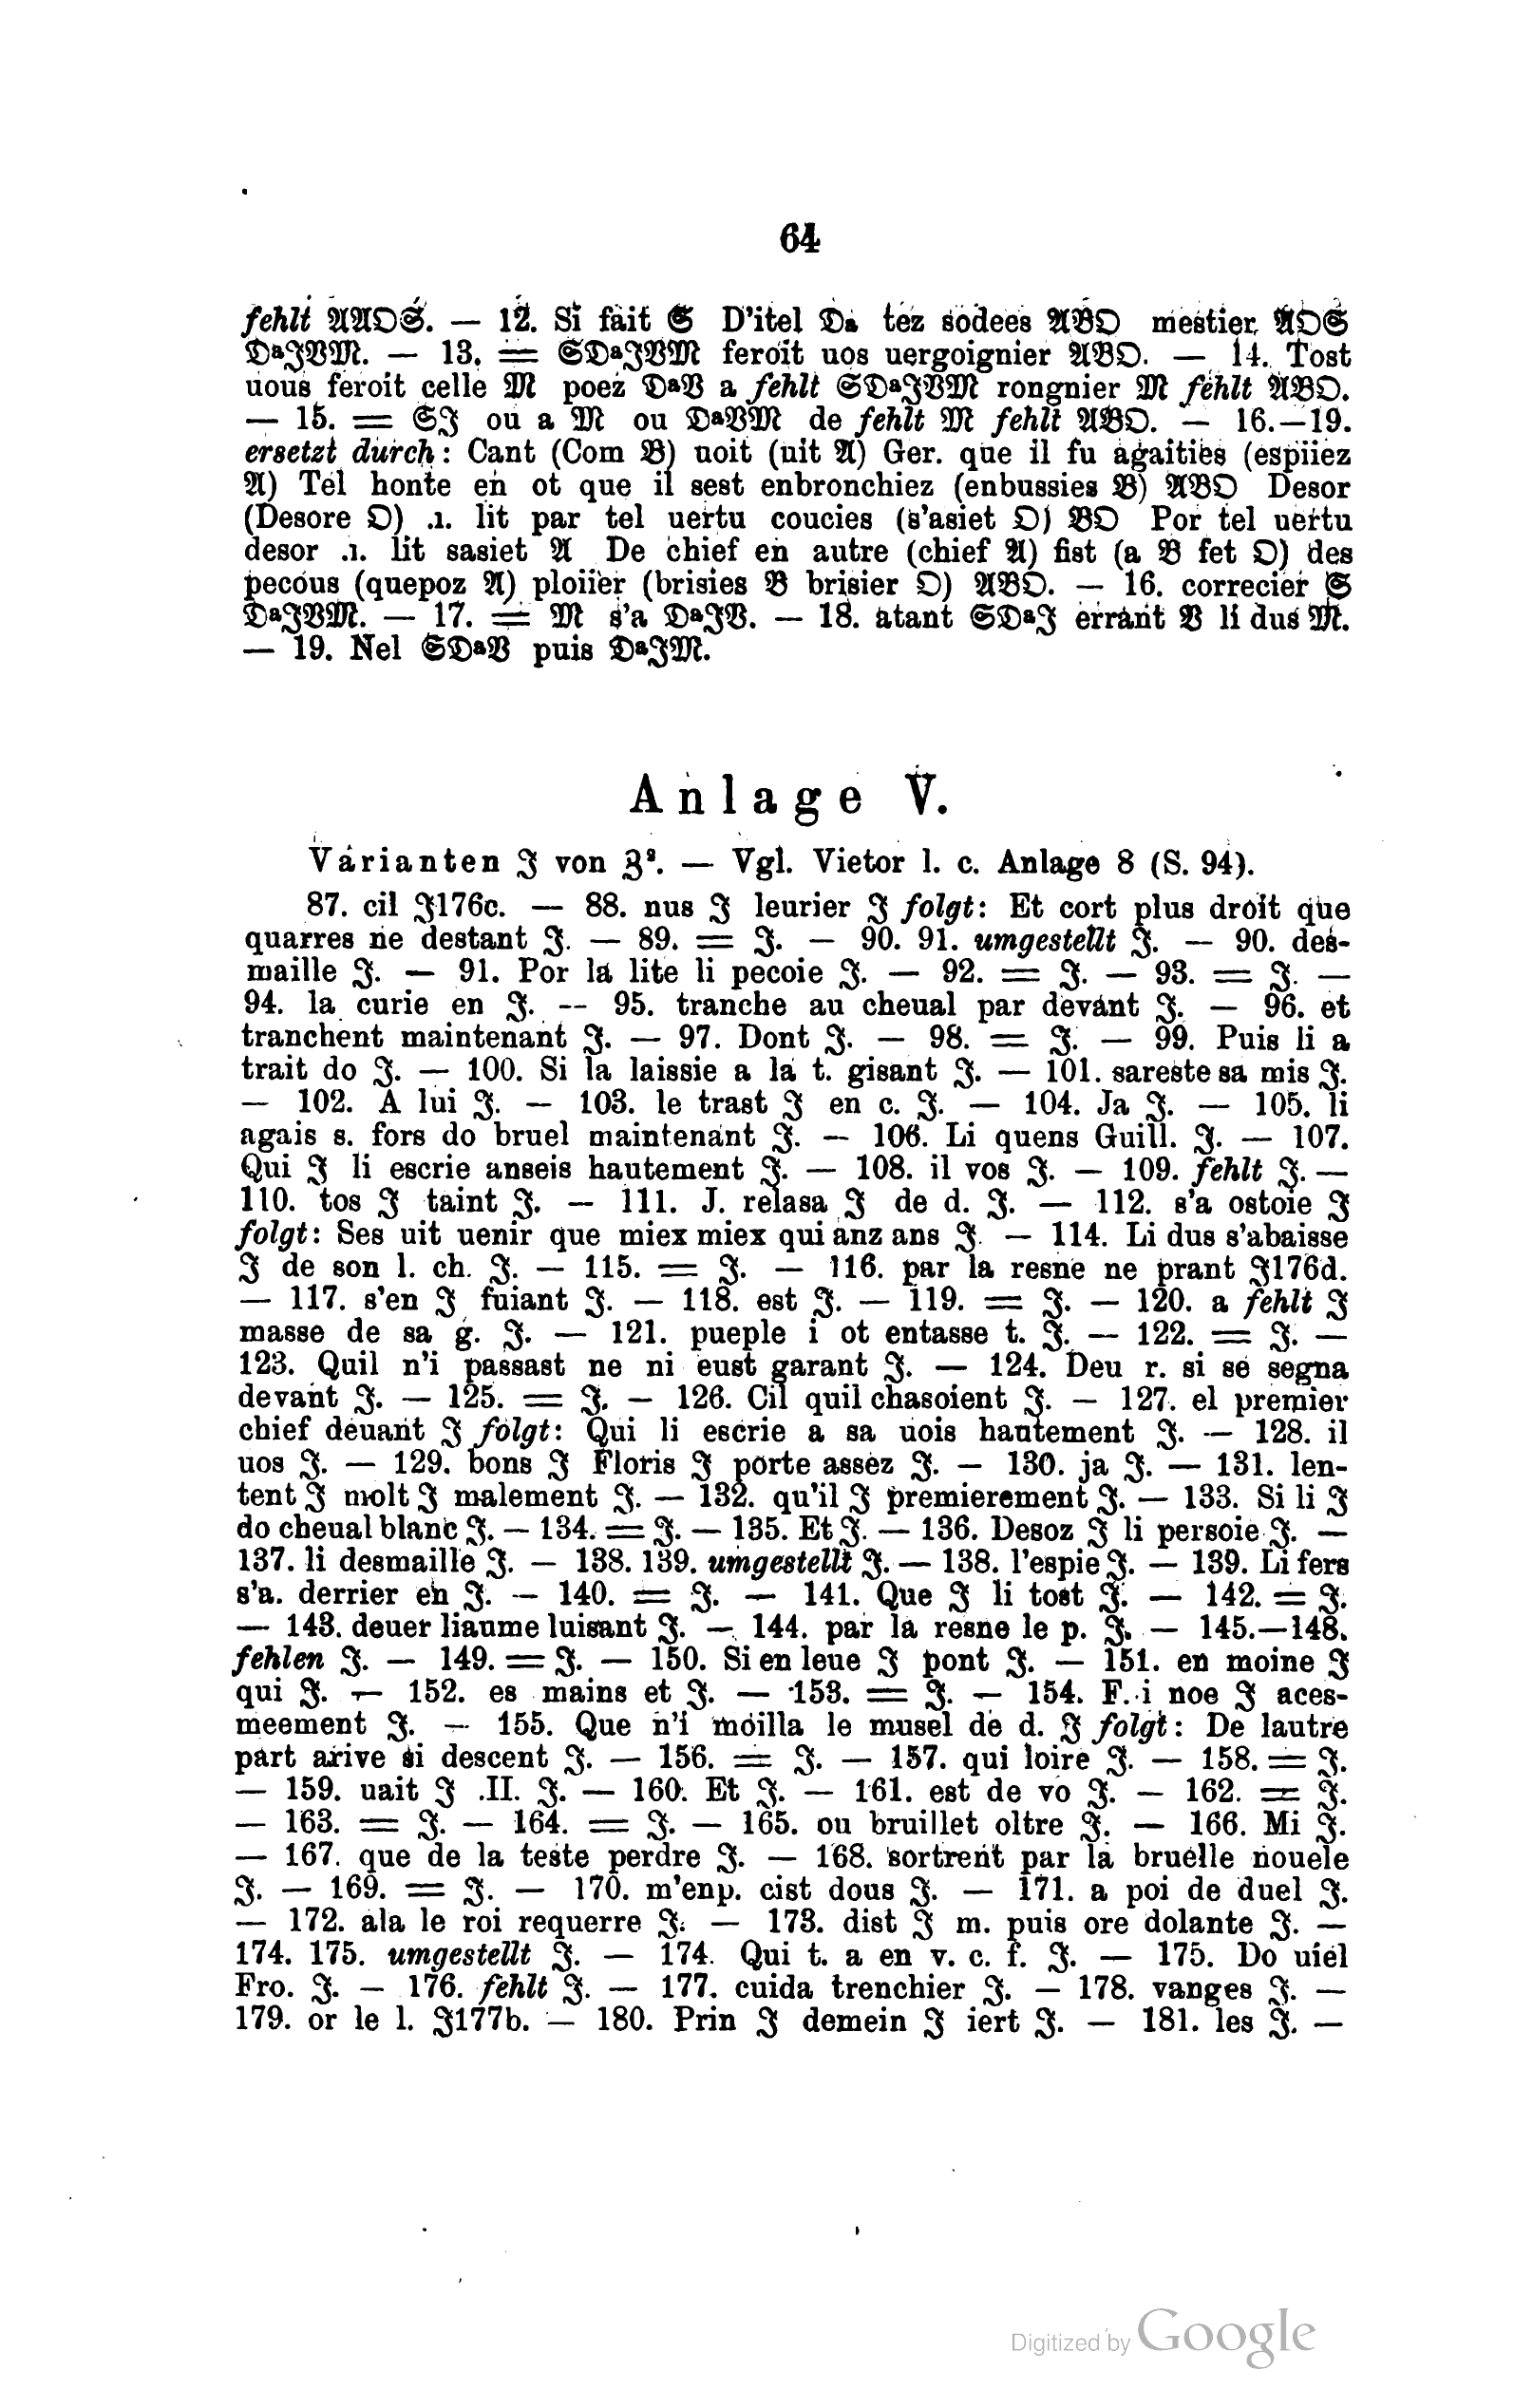 64
fehlt 𝔄𝔄𝔒𝔖. — 12. Si fait 𝔖 D'itel 𝔇a tez sodees 𝔄𝔅𝔒 mestier 𝔄𝔒𝔖
𝔇a𝔍𝔙𝔐. — 13. = 𝔖𝔇a𝔍𝔙𝔐 feroit uos uergoignier 𝔄𝔅𝔒. — 14. Tost
uous feroit celle 𝔐 poez 𝔇a𝔙 a fehlt 𝔖𝔇a𝔍𝔙𝔐 rongnier 𝔐 fehlt 𝔄𝔅𝔒.
— 15. = 𝔖𝔍 ou a 𝔐 ou 𝔇a𝔙𝔐 de fehlt 𝔐 fehlt 𝔄𝔅𝔒. — 16.—19.
ersetzt durch: Cant (Com 𝔅) uoit (uit 𝔄) Ger. que il fu agaities (espiiez
𝔄) Tel honte en ot que il sest enbronchiez (enbussies 𝔅) 𝔄𝔅𝔒 Desor
(Desore 𝔒) .ı. lit par tel uertu coucies (s'asiet 𝔒) 𝔅𝔒 Por tel uertu
desor .ı. lit sasiet 𝔄 De chief en autre (chief 𝔄) fist (a 𝔅 fet 𝔒) des
pecous (quepoz 𝔄) ploiier (brisies 𝔅 brisier 𝔒) 𝔄𝔅𝔒. — 16. correcier 𝔖
𝔇a𝔍𝔙𝔐. — 17. = 𝔐 s'a 𝔇a𝔍𝔙. — 18. atant 𝔖𝔇a𝔍 errant 𝔙 li dus 𝔐.
— 19. Nel 𝔖𝔇a𝔙 puis 𝔇a𝔍𝔐.
Anlage V.
Varianten 𝔍 von 𝔷ª. — Vgl. Vietor l. c. Anlage 8 (S. 94).
87. cil 𝔍176c. — 88. nus 𝔍 leurier 𝔍 folgt: Et cort plus droit que
quarres ne destant 𝔍. — 89. = 𝔍. — 90. 91. umgestellt 𝔍. — 90. des-
maille 𝔍. — 91. Por la lite li pecoie 𝔍. — 92. = 𝔍. — 93. = 𝔍. —
94. la curie en 𝔍. -- 95. tranche au cheual par devant 𝔍. — 96. et
tranchent maintenant 𝔍. — 97. Dont 𝔍. — 98. = 𝔍. — 99. Puis li a
trait do 𝔍. — 100. Si la laissie a la t. gisant 𝔍. — 101. sareste sa mis 𝔍.
— 102. A lui 𝔍. — 103. le trast 𝔍 en c. 𝔍. — 104. Ja 𝔍. — 105. li
agais s. fors do bruel maintenant 𝔍. — 106. Li quens Guill. 𝔍. — 107.
Qui 𝔍 li escrie anseis hautement 𝔍. — 108. il vos 𝔍. — 109. fehlt 𝔍. —
110. tos 𝔍 taint 𝔍. — 111. J. relasa 𝔍 de d. 𝔍. — 112. s'a ostoie 𝔍
folgt: Ses uit uenir que miex miex qui anz ans 𝔍. — 114. Li dus s'abaisse
𝔍 de son l. ch. 𝔍. — 115. = 𝔍. — 116. par la resne ne prant 𝔍176d.
— 117. s'en 𝔍 fuiant 𝔍. — 118. est 𝔍. — 119. = 𝔍. — 120. a fehlt 𝔍
masse de sa g. 𝔍. — 121. pueple i ot entasse t. 𝔍. — 122. = 𝔍. —
123. Quil n'i passast ne ni eust garant 𝔍. — 124. Deu r. si se segna
devant 𝔍. — 125. = 𝔍. — 126. Cil quil chasoient 𝔍. — 127. el premier
chief deuant 𝔍 folgt: Qui li escrie a sa uois hautement 𝔍. — 128. il
uos 𝔍. — 129. bons 𝔍 Floris 𝔍 porte assez 𝔍. — 130. ja 𝔍. — 131. len-
tent 𝔍 molt 𝔍 malement 𝔍. — 132. qu'il 𝔍 premierement 𝔍. — 133. Si li 𝔍
do cheual blanc 𝔍. — 134. = 𝔍. — 135. Et 𝔍. — 136. Desoz 𝔍 li persoie 𝔍. —
137. li desmaille 𝔍. — 138. 139. umgestellt 𝔍. — 138. l'espie 𝔍. — 139. Li fers
s'a. derrier en 𝔍. — 140. = 𝔍. — 141. Que 𝔍 li tost 𝔍. — 142. = 𝔍.
— 143. deuer liaume luisant 𝔍. — 144. par la resne le p. 𝔍. — 145.—148.
fehlen 𝔍. — 149. = 𝔍. — 150. Si en leue 𝔍 pont 𝔍. — 151. en moine 𝔍
qui 𝔍. — 152. es mains et 𝔍. — 153. = 𝔍. — 154. F. i noe 𝔍 aces-
meement 𝔍. — 155. Que n'i moilla le musel de d. 𝔍 folgt: De lautre
part arive si descent 𝔍. — 156. = 𝔍. — 157. qui loire 𝔍. — 158. = 𝔍.
— 159. uait 𝔍 .II. 𝔍. — 160. Et 𝔍. — 161. est de vo 𝔍. — 162. = 𝔍.
— 163. = 𝔍. — 164. = 𝔍. — 165. ou bruillet oltre 𝔍. — 166. Mi 𝔍.
— 167. que de la teste perdre 𝔍. — 168. sortrent par la bruelle nouele
𝔍. — 169. = 𝔍. — 170. m'enp. cist dous 𝔍. — 171. a poi de duel 𝔍.
— 172. ala le roi requerre 𝔍. — 173. dist 𝔍 m. puis ore dolante 𝔍. —
174. 175. umgestellt 𝔍. — 174. Qui t. a en v. c. f. 𝔍. — 175. Do uiel
Fro. 𝔍. — 176. fehlt 𝔍. — 177. cuida trenchier 𝔍. — 178. vanges 𝔍. —
179. or le l. 𝔍177b. — 180. Prin 𝔍 demein 𝔍 iert 𝔍. — 181. les 𝔍. —
Digitized by Google